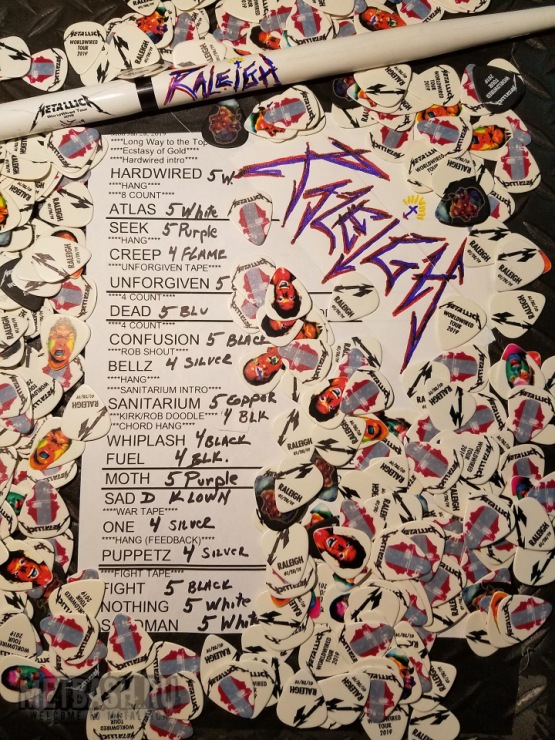 RALEIGH
METALLICA
WorldWired Tour
****Long Way to the Top
****Ecstasy of Gold****
****Hardwired intro****
HARDWIRED 5 W
****HANG****
****8 COUNT****
ATLAS 5 White
SEEK 5 Purple
****HANG****
CREEP 4 FLAME
****UNFORGIVEN TAPE****
UNFORGIVEN 5
****4 COUNT****
DEAD 5 BLU
****4 COUNT****
CONFUSION 5 BLACK
****ROB SHOUT****
BELLZ 4 SILVER
****HANG****
****SANITARIUM INTRO****
SANITARIUM 5 COPPER
****KIRK/ROB DOODLE**** 4 BLK
****CHORD HANG****
WHIPLASH 4 BLACK
FUEL 4 BLK.
MOTH 5 Purple
SAD D KLOWN
****WAR TAPE****
ONE 4 SILVER
****HANG (FEEDBACK)****
PUPPETZ 4 SILVER
****FIGHT TAPE****
FIGHT 5 BLACK
NOTHING 5 White
S NDMAN 5 White
RALEIGH
METALLICA
WORLDWIRED
TOUR
2019
RALEIGH
01/28/19
METBASH.RU
WELCOME TO METALLICA